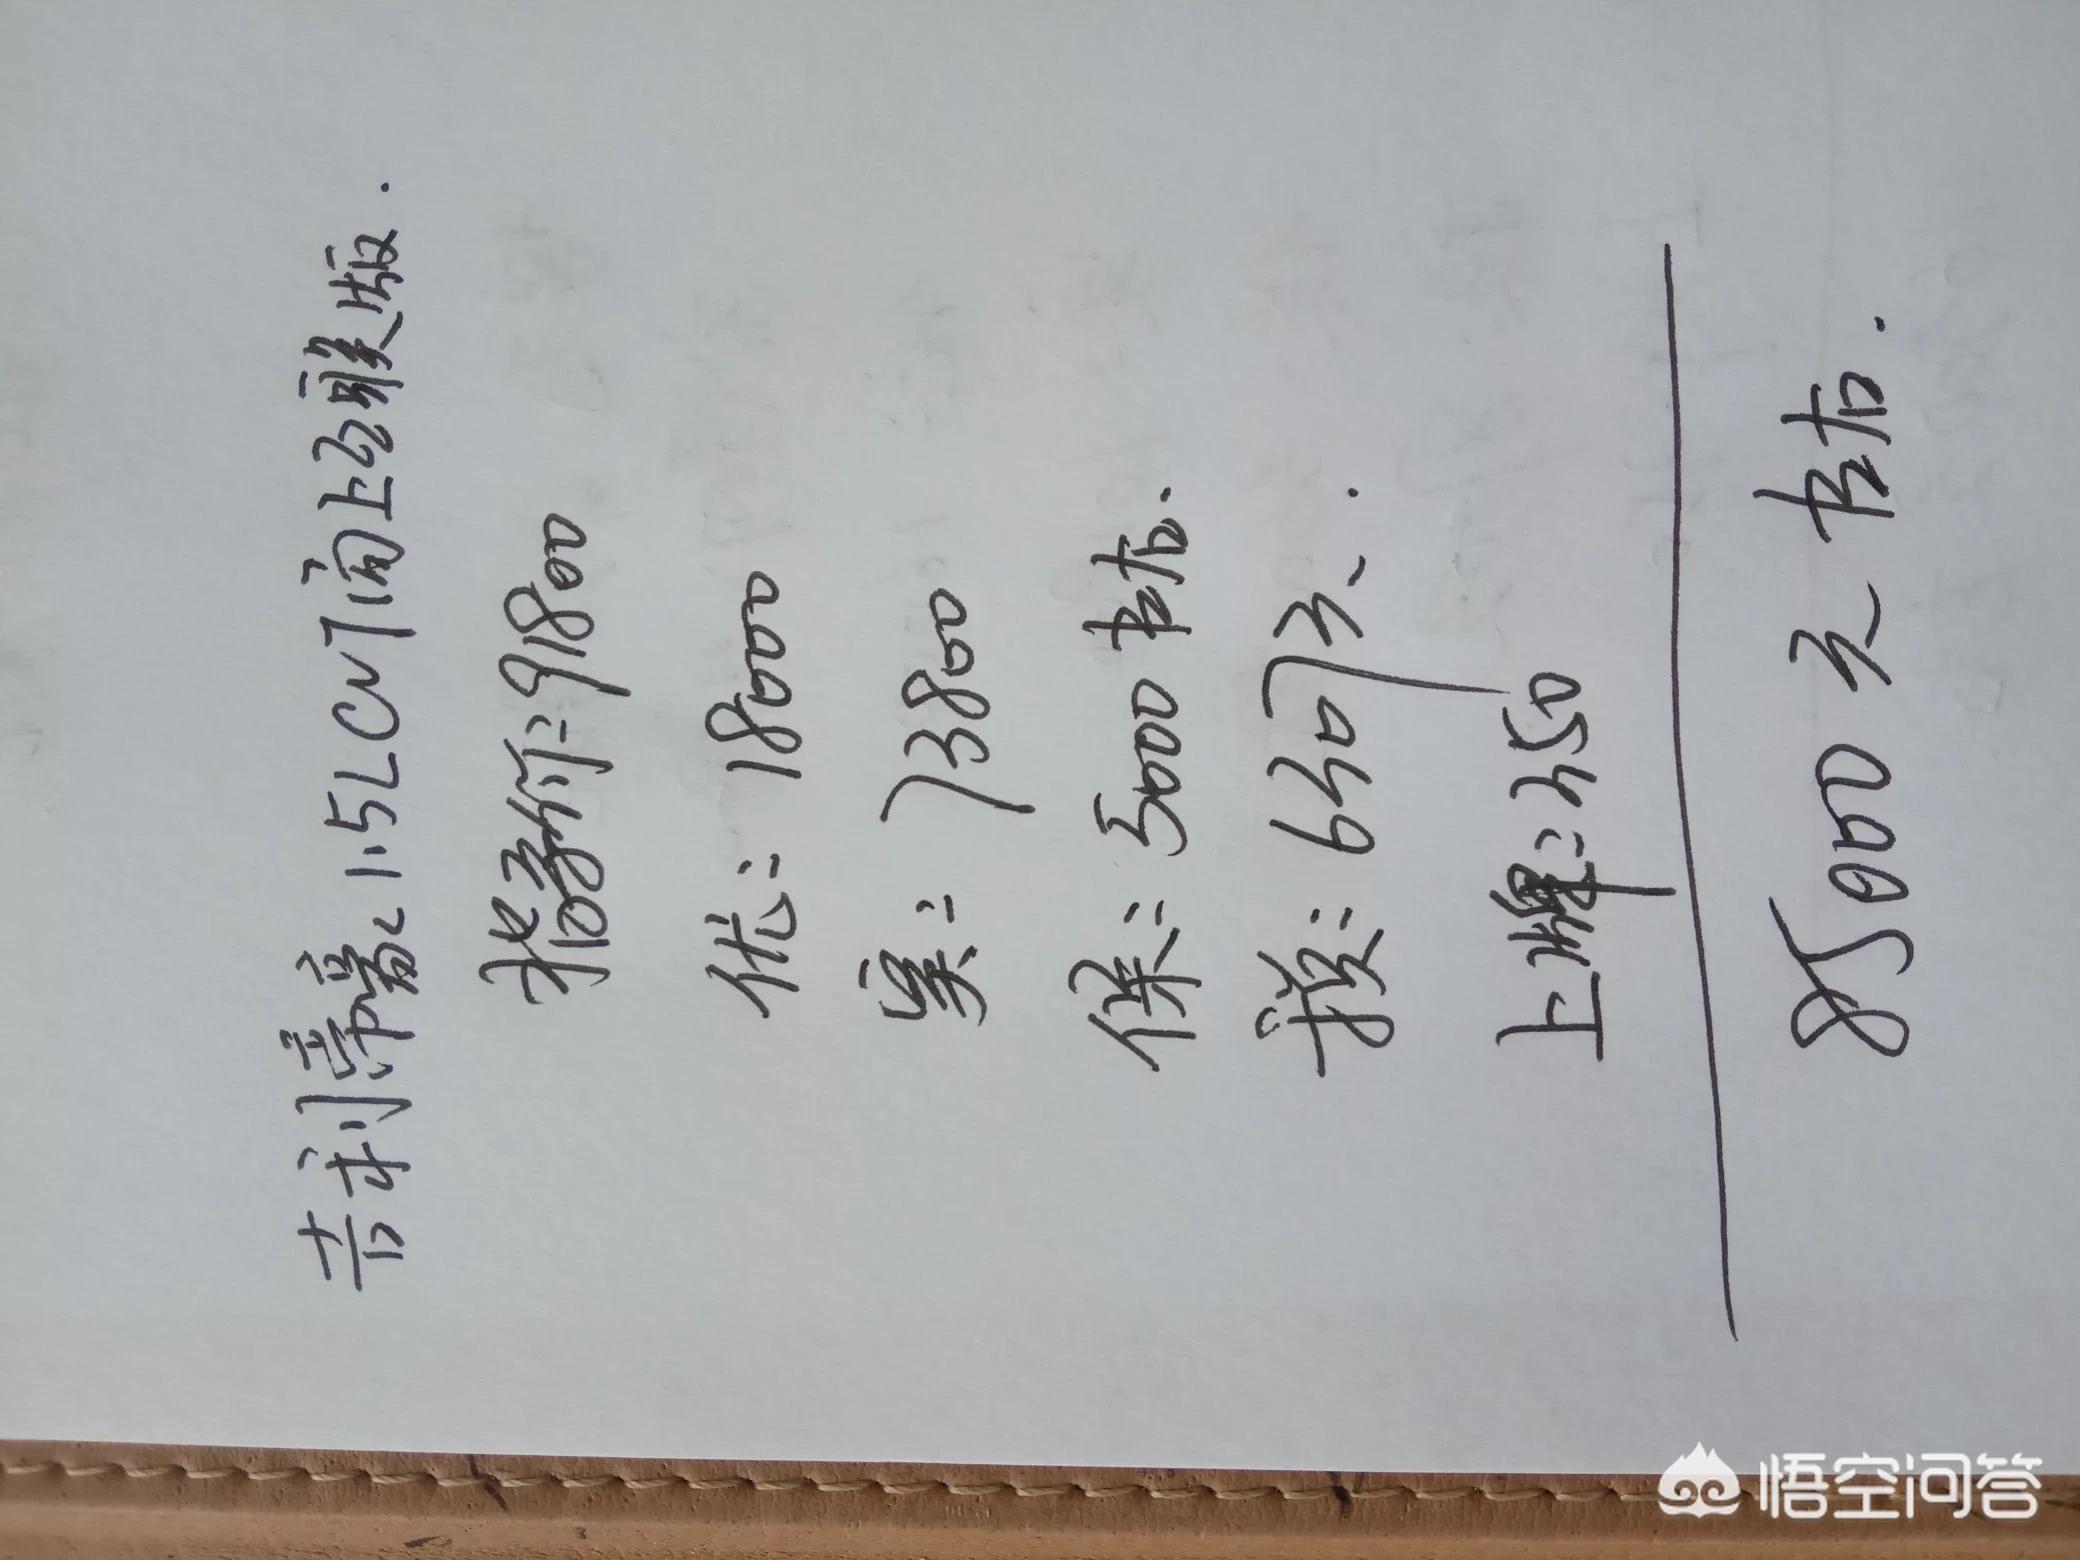 吉利帝豪1.5LCVT向上互联版.
指导价:91800
优:18000
实:73800
保:5000左右.
税:6407元.
上牌:450
85000元左右.
悟空问答